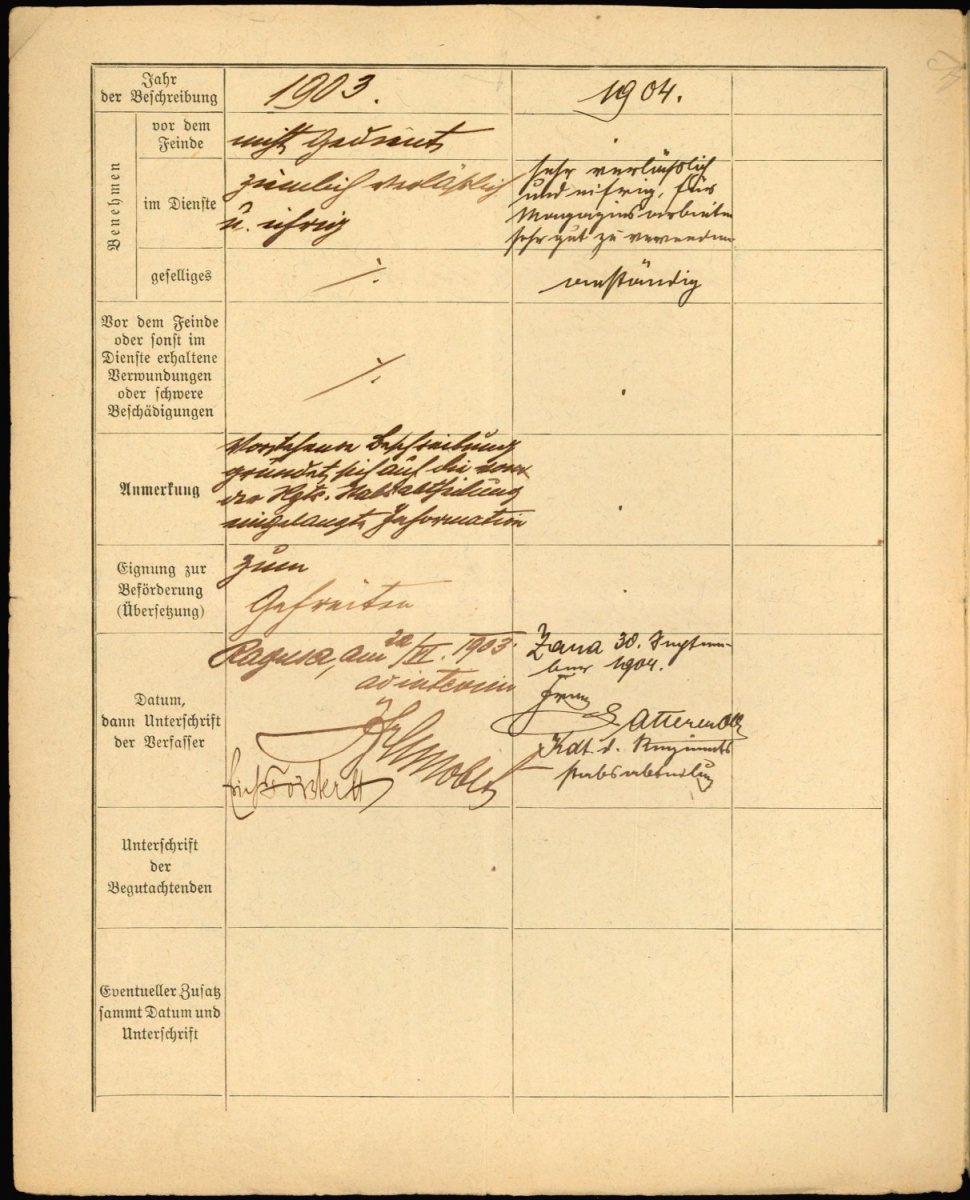 Jahr
der Beschreibung
1903.
1904.
Benehmen
vor dem
Feinde
nicht gedient
im Dienste
ziemlich verläßlich
u. eifrig
sehr verläßlich
und eifrig, für
Magazinsarbeiten
sehr gut zu verwenden
geselliges
⁒
anständig
Vor dem Feinde
oder sonst im
Dienste erhaltene
Verwundungen
oder schwere
Beschädigungen
⁒
Anmerkung
Vorstehende Beschreibung
gründet sich auf die von
der Rgts. Stabsabtheilung
eingelangte Information
Eignung zur
Beförderung
(Übersetzung)
zum
Gefreiten
Datum,
dann Unterschrift
der Verfasser
Ragusa, am /VI. 1903.
ad interim
Zara 30. Septem-
ber 1904.
Kdt. d. Regiments
stabsabteilung
Unterschrift
der
Begutachtenden
Eventueller Zusatz
sammt Datum und
Unterschrift